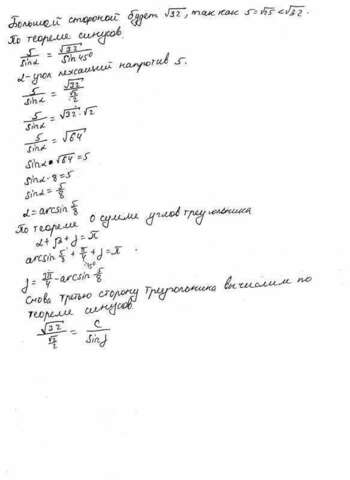 Большей стороной будет √32, так как 5=√25<√32.
По теореме синусов
5/sinα = √32/sin45°
α-угол лежащий напротив 5.
5/sinα = √32/(√2/2)
5/sinα = √32·√2
5/sinα = √64
sinα•√64=5
sinα·8=5
sinα=5/8
α=arcsin 5/8
По теореме о сумме углов треугольника
α+β+γ=π
arcsin 5/8 + π/4 + γ=π.
γ=3π/4-arcsin 5/8
Снова третью сторону треугольника вычислим по
теореме синусов
√32/(√2/2) = c/sinγ